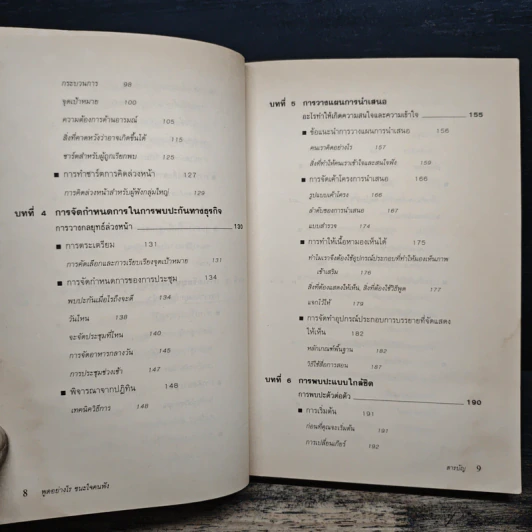 กระบวนการ 98
จุดเป้าหมาย 100
ความต้องการด้านอารมณ์ 105
สิ่งที่คาดหวังว่าอาจเกิดขึ้นได้ 115
ชาร์ตสำหรับผู้ถูกเรียกพบ 125
■ การทำชาร์ตการคิดล่วงหน้า 127
การคิดล่วงหน้าสำหรับผู้ฟังกลุ่มใหญ่ 129
บทที่ 4 การจัดกำหนดการในการพบปะกันทางธุรกิจ
การวางกลยุทธ์ล่วงหน้า 131
■ การตระเตรียม 131
การคัดเลือกและการเรียบเรียงจุดเป้าหมาย 131
■ การจัดกำหนดการของการประชุม 134
พบปะกันเมื่อไรถึงจะดี 134
วันไหน 138
จะจัดประชุมที่ไหน 140
การจัดอาหารกลางวัน 145
การประชุมช่วงเช้า 147
■ พิจารณาจากปฏิทิน 148
เทคนิควิธีการ 148
8 พูดอย่างไร ชนะใจคนฟัง
บทที่ 5 การวางแผนการนำเสนอ
อะไรทำให้เกิดความสนใจและความเข้าใจ 155
■ ข้อแนะนำการวางแผนการนำเสนอ 156
คนเราคิดอย่างไร 157
สิ่งที่ทำให้คนเราเข้าใจและสนใจฟัง 158
■ การจัดเค้าโครงการนำเสนอ 166
รูปแบบเค้าโครง 167
ลำดับของการนำเสนอ 167
แบบสำรวจ 174
■ การทำให้เนื้อหามองเห็นได้ 175
ทำไมเราจึงต้องใช้อุปกรณ์ประกอบที่ทำให้มองเห็นภาพ
เข้าเสริม 176
สิ่งที่ต้องแสดงให้เห็น, สิ่งที่ต้องใช้วิธีพูด 177
แจกไว้ให้ 179
■ การจัดทำอุปกรณ์ประกอบการบรรยายที่จัดแสดง
ให้เห็น 182
หลักเกณฑ์พื้นฐาน 182
วิธีใช้สื่อการสอน 187
บทที่ 6 การพบปะแบบใกล้ชิด
การพบปะตัวต่อตัว 190
■ การเริ่มต้น 191
ก่อนที่คุณจะเริ่มต้น 191
การเปลี่ยนเกียร์ 192
สารบัญ 9